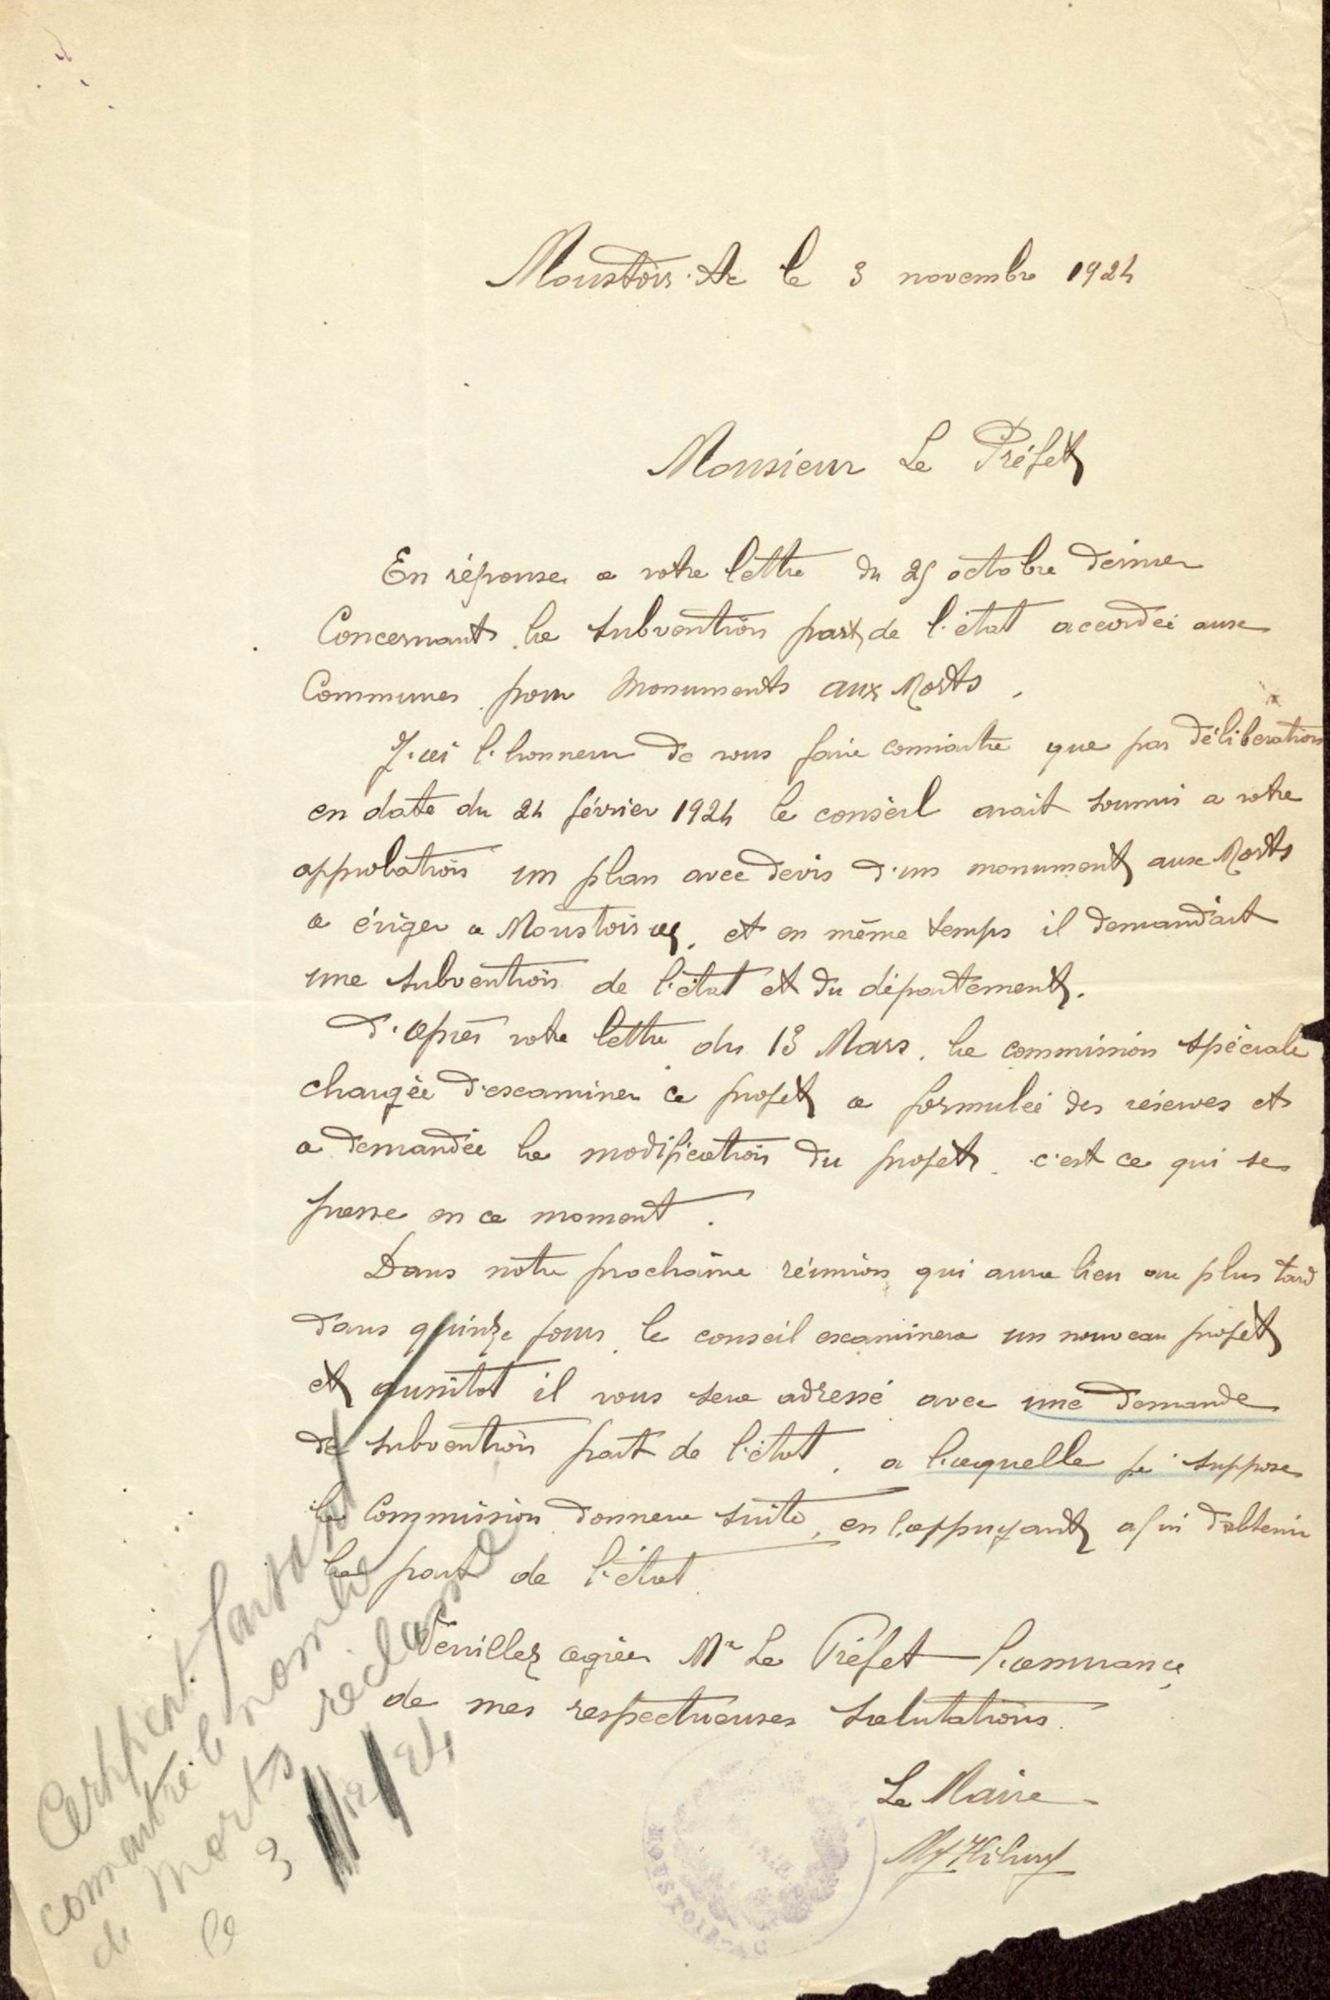 Moustoir.Ac le 3 novembre 1924
Monsieur Le Préfet
En réponse a votre lettre du 25 octobre dernier
Concernant la subvention part de l'état accordée aux
Communes pour Monuments aux Morts.
J'ai l'honneur de vous faire connaitre que par déliberation
en date du 24 février 1924 le conseil avait soumis a votre
approbation un plan avec devis d'un monument aux Morts
a ériger a Moustoir ac, et en même temps il demandait
une subvention de l'état et du département.
D'après votre lettre du 13 Mars, la commission spéciale
chargée d'examiner ce projet a formulée des réserves et
a demandée la modification du projet. c'est ce qui se
passe en ce moment.
Dans notre prochaine réunion qui aura lieu au plus tard
dans quinze jours, le conseil examinera un nouveau projet
et aussitot il vous sera adressé avec une demande
de subvention part de l'état, a laquelle je suppose
la Commission donnera suite, en l'appuyant afin d'obtenir
la part de l'état
Veuillez agréer Mr Le Préfet l'assurance
de mes respectueuses salutations.
Le Maire
MOUSTOIR-AC
Certificat faisant
connaitre le nombre
de Morts réclamé
le 3 12/24